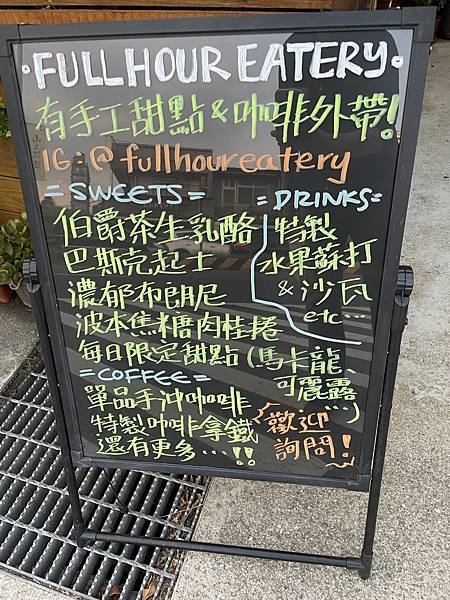 ·FULL HOUR EATERY·
有手工甜點&咖啡外帶!
IG:@fullhoureatery
=SWEETS=
伯爵茶生乳酪
巴斯克起士
濃郁布朗尼
波本焦糖肉桂捲
每日限定甜點(馬卡龍、
可麗露
...)
=DRINKS=
特製
水果蘇打
&沙瓦
etc...
=COFFEE=
單品手沖咖啡
特製咖啡拿鐵
還有更多...!!
歡迎
詢問!